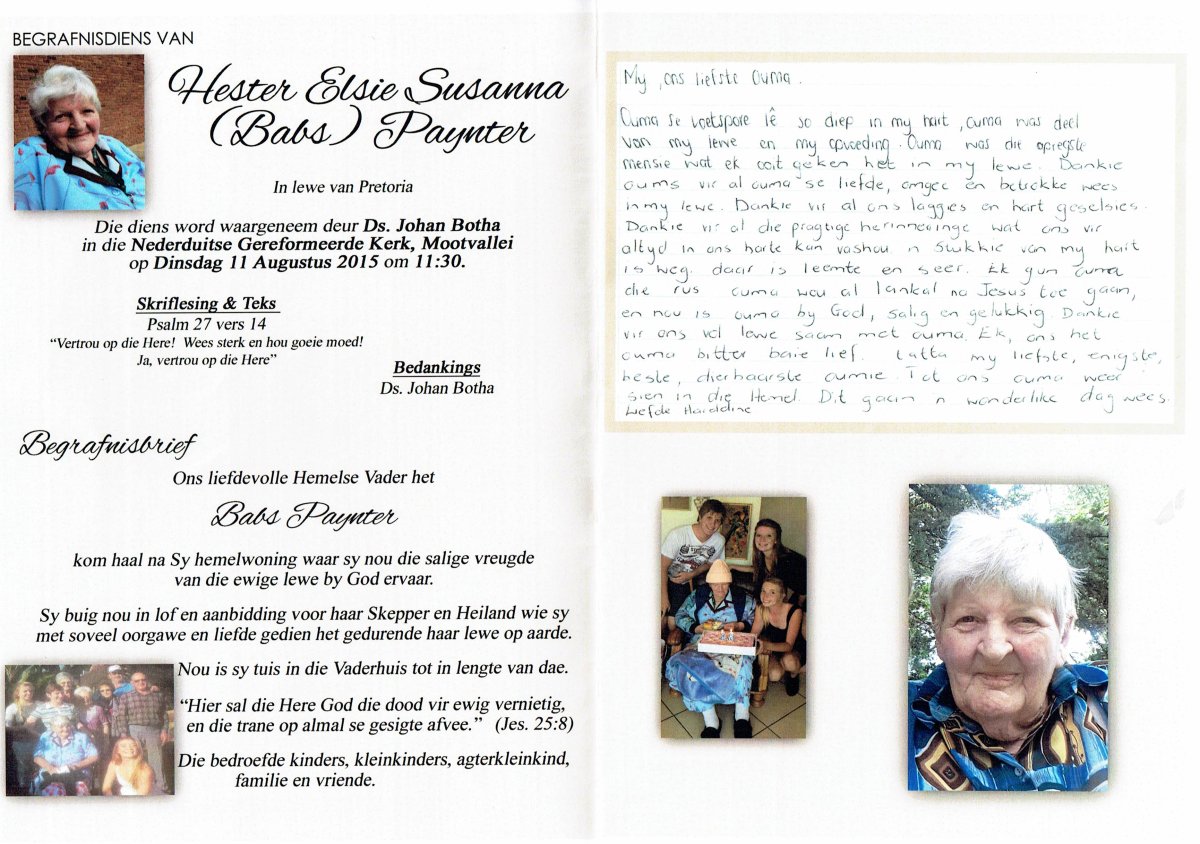 BEGRAFNISDIENS VAN
Hester Elsie Susanna
(Babs) Paynter
In lewe van Pretoria
Die diens word waargeneem deur Ds. Johan Botha
in die Nederduitse Gereformeerde Kerk, Mootvallei
op Dinsdag 11 Augustus 2015 om 11:30.
Skriflesing & Teks
Psalm 27 vers 14
“Vertrou op die Here! Wees sterk en hou goeie moed!
Ja, vertrou op die Here”
Bedankings
Ds. Johan Botha
Begrafnisbrief
Ons liefdevolle Hemelse Vader het
Babs Paynter
kom haal na Sy hemelwoning waar sy nou die salige vreugde
van die ewige lewe by God ervaar.
Sy buig nou in lof en aanbidding voor haar Skepper en Heiland wie sy
met soveel oorgawe en liefde gedien het gedurende haar lewe op aarde.
Nou is sy tuis in die Vaderhuis tot in lengte van dae.
“Hier sal die Here God die dood vir ewig vernietig,
en die trane op almal se gesigte afvee.” (Jes. 25:8)
Die bedroefde kinders, kleinkinders, agterkleinkind,
familie en vriende.
My, ons liefste Ouma.
Ouma se voetspore lê so diep in my hart, ouma was deel
van my lewe en my opvoeding. Ouma was die opregste
mensie wat ek ooit geken het in my lewe. Dankie
oums vir al ouma se liefde, omgee en betrokke wees
in my lewe. Dankie vir al ons laggies en hart geselsies.
Dankie vir al die pragtige herinneringe wat ons vir
altyd in ons harte kan vashou. n Stukkie van my hart
is weg. daar is leemte en seer. Ek gun ouma
die rus ouma wou al lankal na Jesus toe gaan,
en nou is ouma by God, salig en gelukkig. Dankie
vir ons vol lewe saam met ouma. Ek, ons het
ouma bitter baie lief. Tatta my liefste, enigste,
beste, dierbaarste oumie. Tot ons ouma weer
sien in die Hemel. Dit gaan 'n wonderlike dag wees.
Liefde